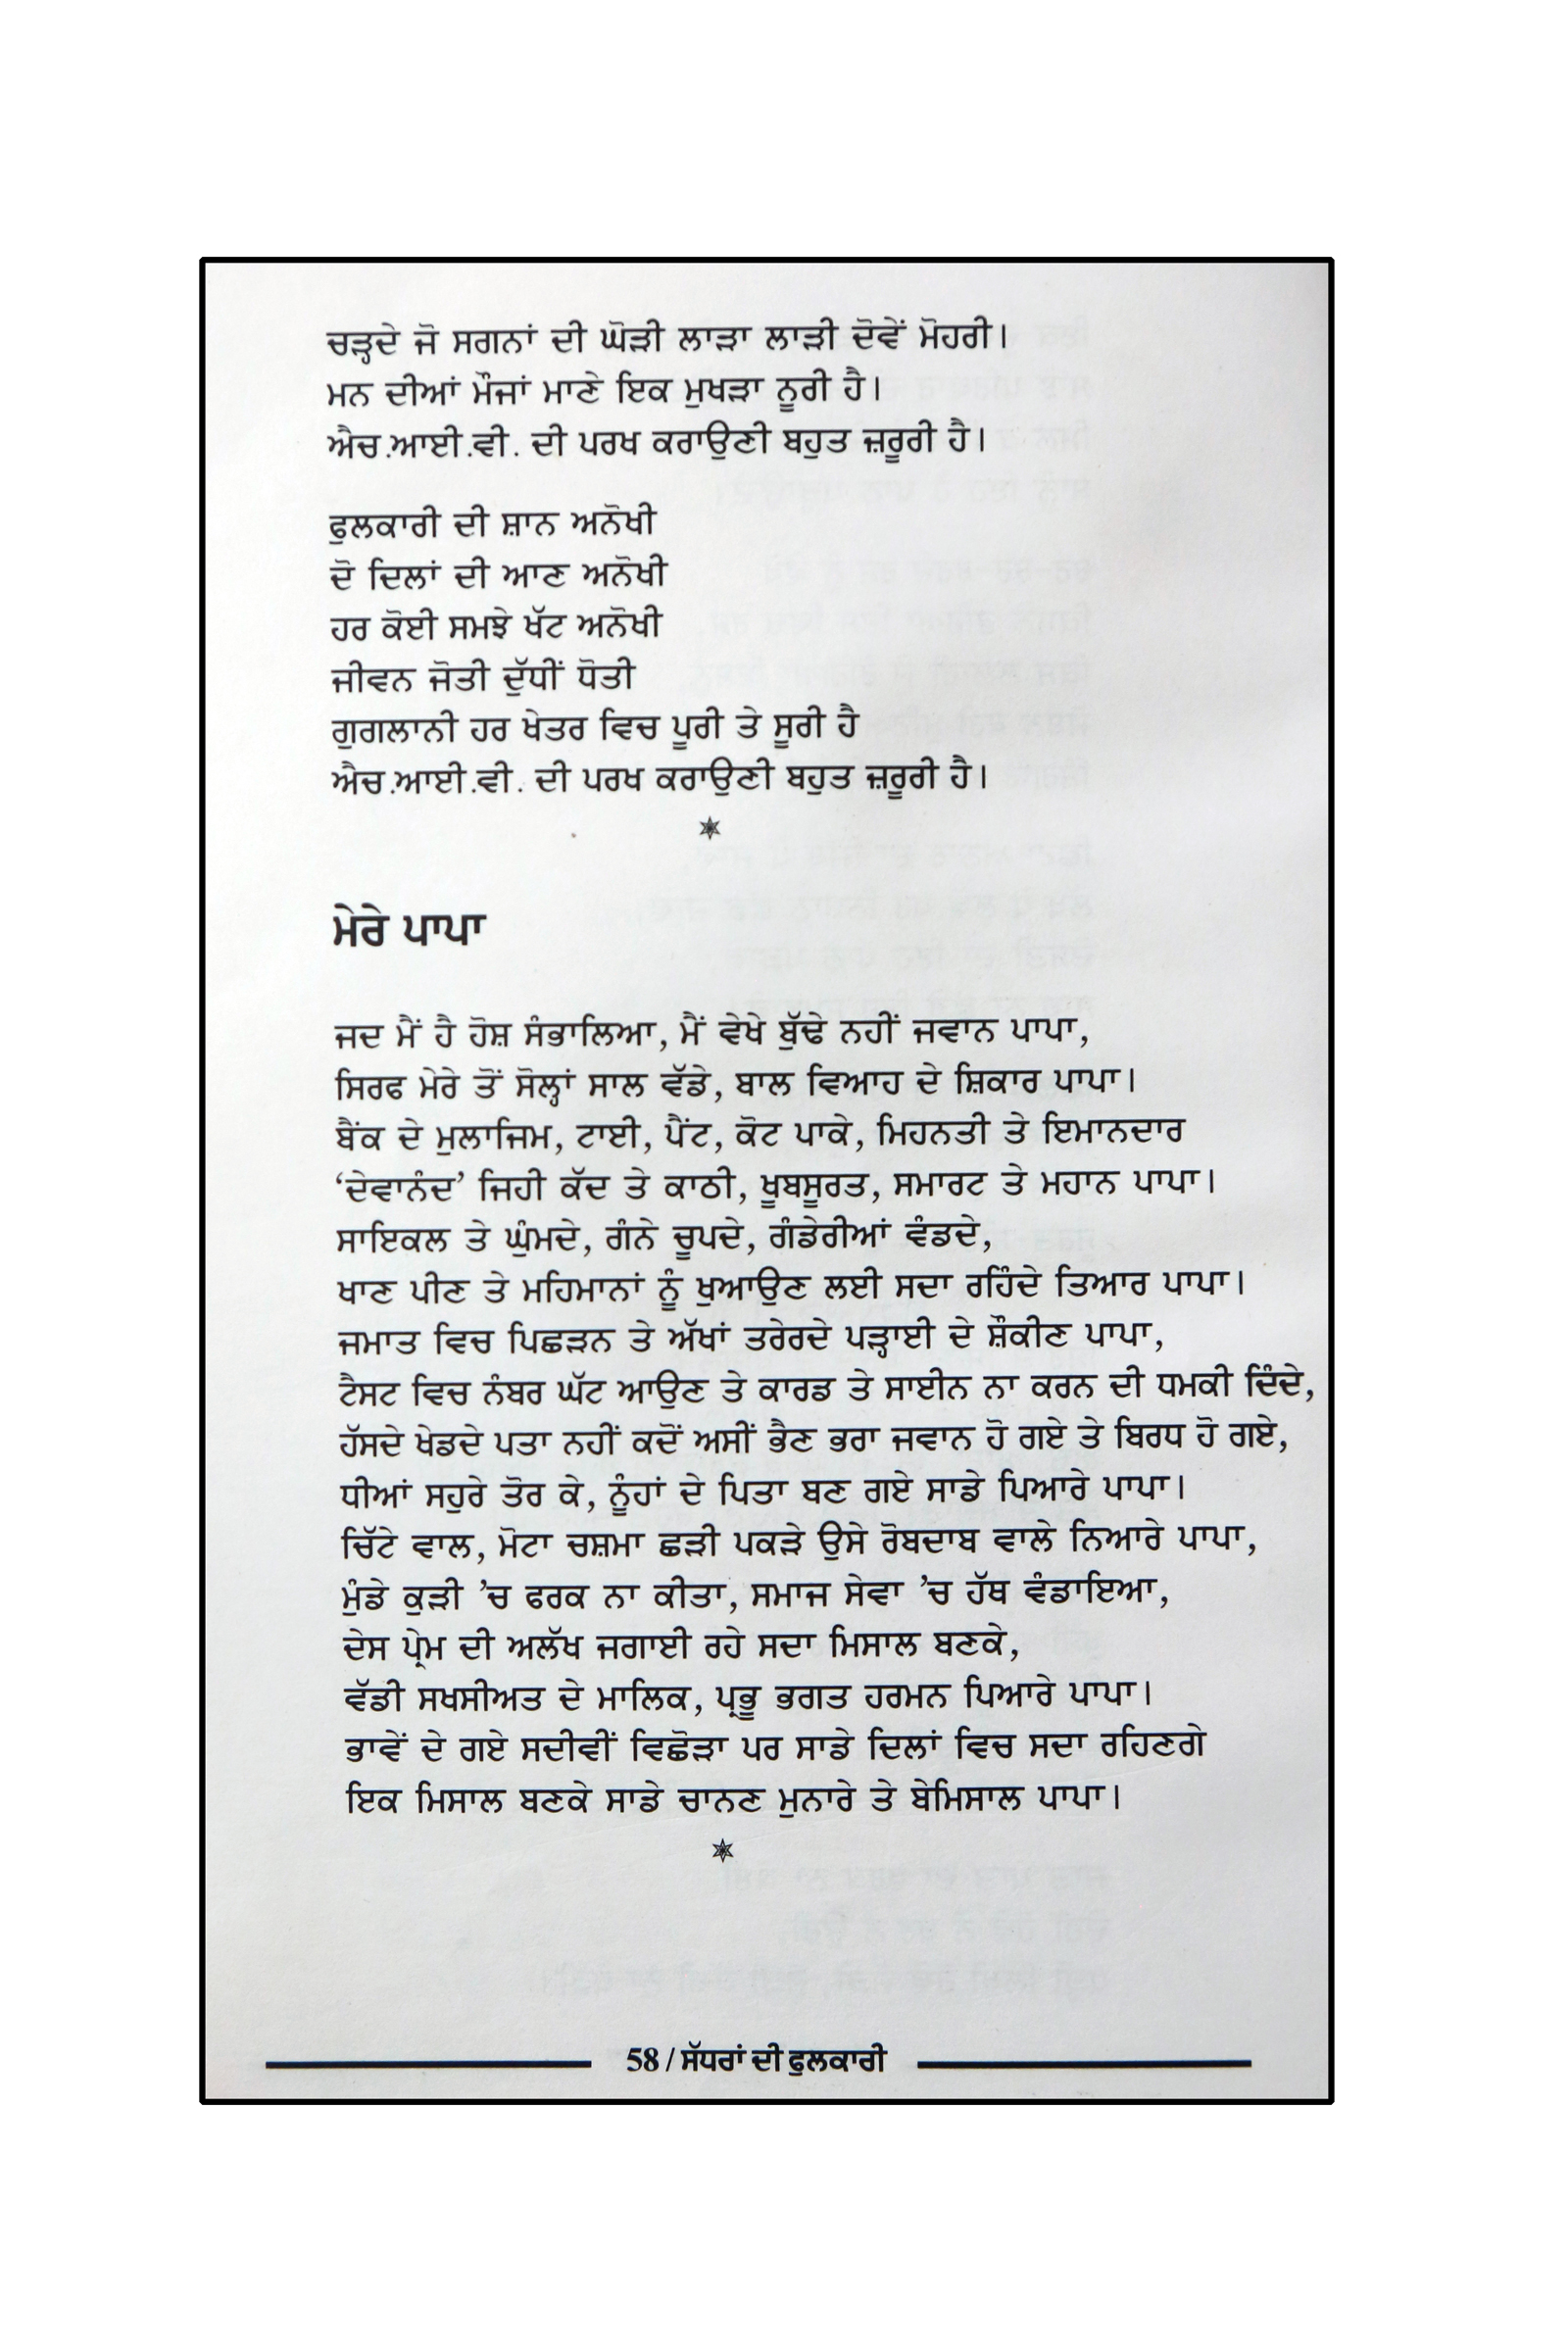 ਚੜ੍ਹਦੇ ਜੋ ਸਗਨਾਂ ਦੀ ਘੋੜੀ ਲਾੜਾ ਲਾੜੀ ਦੋਵੇਂ ਮੋਹਰੀ।
ਮਨ ਦੀਆਂ ਮੌਜਾਂ ਮਾਣੇ ਇਕ ਮੁਖੜਾ ਨੂਰੀ ਹੈ।
ਐਚ.ਆਈ.ਵੀ. ਦੀ ਪਰਖ ਕਰਾਉਣੀ ਬਹੁਤ ਜ਼ਰੂਰੀ ਹੈ।
ਫੁਲਕਾਰੀ ਦੀ ਸ਼ਾਨ ਅਨੋਖੀ
ਦੋ ਦਿਲਾਂ ਦੀ ਆਣ ਅਨੋਖੀ
ਹਰ ਕੋਈ ਸਮਝੇ ਖੱਟ ਅਨੋਖੀ
ਜੀਵਨ ਜੋਤੀ ਦੁੱਧੀਂ ਧੋਤੀ
ਗੁਗਲਾਨੀ ਹਰ ਖੇਤਰ ਵਿਚ ਪੂਰੀ ਤੇ ਸੂਰੀ ਹੈ
ਐਚ.ਆਈ.ਵੀ. ਦੀ ਪਰਖ ਕਰਾਉਣੀ ਬਹੁਤ ਜ਼ਰੂਰੀ ਹੈ।
ਮੇਰੇ ਪਾਪਾ
ਜਦ ਮੈਂ ਹੈ ਹੋਸ਼ ਸੰਭਾਲਿਆ, ਮੈਂ ਵੇਖੇ ਬੁੱਢੇ ਨਹੀਂ ਜਵਾਨ ਪਾਪਾ,
ਸਿਰਫ ਮੇਰੇ ਤੋਂ ਸੋਲ੍ਹਾਂ ਸਾਲ ਵੱਡੇ, ਬਾਲ ਵਿਆਹ ਦੇ ਸ਼ਿਕਾਰ ਪਾਪਾ।
ਬੈਂਕ ਦੇ ਮੁਲਾਜਿਮ, ਟਾਈ, ਪੈਂਟ, ਕੋਟ ਪਾਕੇ, ਮਿਹਨਤੀ ਤੇ ਇਮਾਨਦਾਰ
‘ਦੇਵਾਨੰਦ’ ਜਿਹੀ ਕੱਦ ਤੇ ਕਾਠੀ, ਖੂਬਸੂਰਤ, ਸਮਾਰਟ ਤੇ ਮਹਾਨ ਪਾਪਾ।
ਸਾਇਕਲ ਤੇ ਘੁੰਮਦੇ, ਗੰਨੇ ਚੂਪਦੇ, ਗੰਡੇਰੀਆਂ ਵੰਡਦੇ,
ਖਾਣ ਪੀਣ ਤੇ ਮਹਿਮਾਨਾਂ ਨੂੰ ਖੁਆਉਣ ਲਈ ਸਦਾ ਰਹਿੰਦੇ ਤਿਆਰ ਪਾਪਾ।
ਜਮਾਤ ਵਿਚ ਪਿਛੜਨ ਤੇ ਅੱਖਾਂ ਤਰੇਰਦੇ ਪੜ੍ਹਾਈ ਦੇ ਸ਼ੌਕੀਣ ਪਾਪਾ,
ਟੈਸਟ ਵਿਚ ਨੰਬਰ ਘੱਟ ਆਉਣ ਤੇ ਕਾਰਡ ਤੇ ਸਾਈਨ ਨਾ ਕਰਨ ਦੀ ਧਮਕੀ ਦਿੰਦੇ,
ਹੱਸਦੇ ਖੇਡਦੇ ਪਤਾ ਨਹੀਂ ਕਦੋਂ ਅਸੀਂ ਭੈਣ ਭਰਾ ਜਵਾਨ ਹੋ ਗਏ ਤੇ ਬਿਰਧ ਹੋ ਗਏ,
ਧੀਆਂ ਸਹੁਰੇ ਤੋਰ ਕੇ, ਨੂੰਹਾਂ ਦੇ ਪਿਤਾ ਬਣ ਗਏ ਸਾਡੇ ਪਿਆਰੇ ਪਾਪਾ।
ਚਿੱਟੇ ਵਾਲ, ਮੋਟਾ ਚਸ਼ਮਾ ਛੜੀ ਪਕੜੇ ਉਸੇ ਰੋਬਦਾਬ ਵਾਲੇ ਨਿਆਰੇ ਪਾਪਾ,
ਮੁੰਡੇ ਕੁੜੀ ’ਚ ਫਰਕ ਨਾ ਕੀਤਾ, ਸਮਾਜ ਸੇਵਾ ’ਚ ਹੱਥ ਵੰਡਾਇਆ,
ਦੇਸ ਪ੍ਰੇਮ ਦੀ ਅਲੱਖ ਜਗਾਈ ਰਹੇ ਸਦਾ ਮਿਸਾਲ ਬਣਕੇ,
ਵੱਡੀ ਸਖਸੀਅਤ ਦੇ ਮਾਲਿਕ, ਪ੍ਰਭੂ ਭਗਤ ਹਰਮਨ ਪਿਆਰੇ ਪਾਪਾ।
ਭਾਵੇਂ ਦੇ ਗਏ ਸਦੀਵੀਂ ਵਿਛੋੜਾ ਪਰ ਸਾਡੇ ਦਿਲਾਂ ਵਿਚ ਸਦਾ ਰਹਿਣਗੇ
ਇਕ ਮਿਸਾਲ ਬਣਕੇ ਸਾਡੇ ਚਾਨਣ ਮੁਨਾਰੇ ਤੇ ਬੇਮਿਸਾਲ ਪਾਪਾ।
58 / ਸੱਧਰਾਂ ਦੀ ਫੁਲਕਾਰੀ